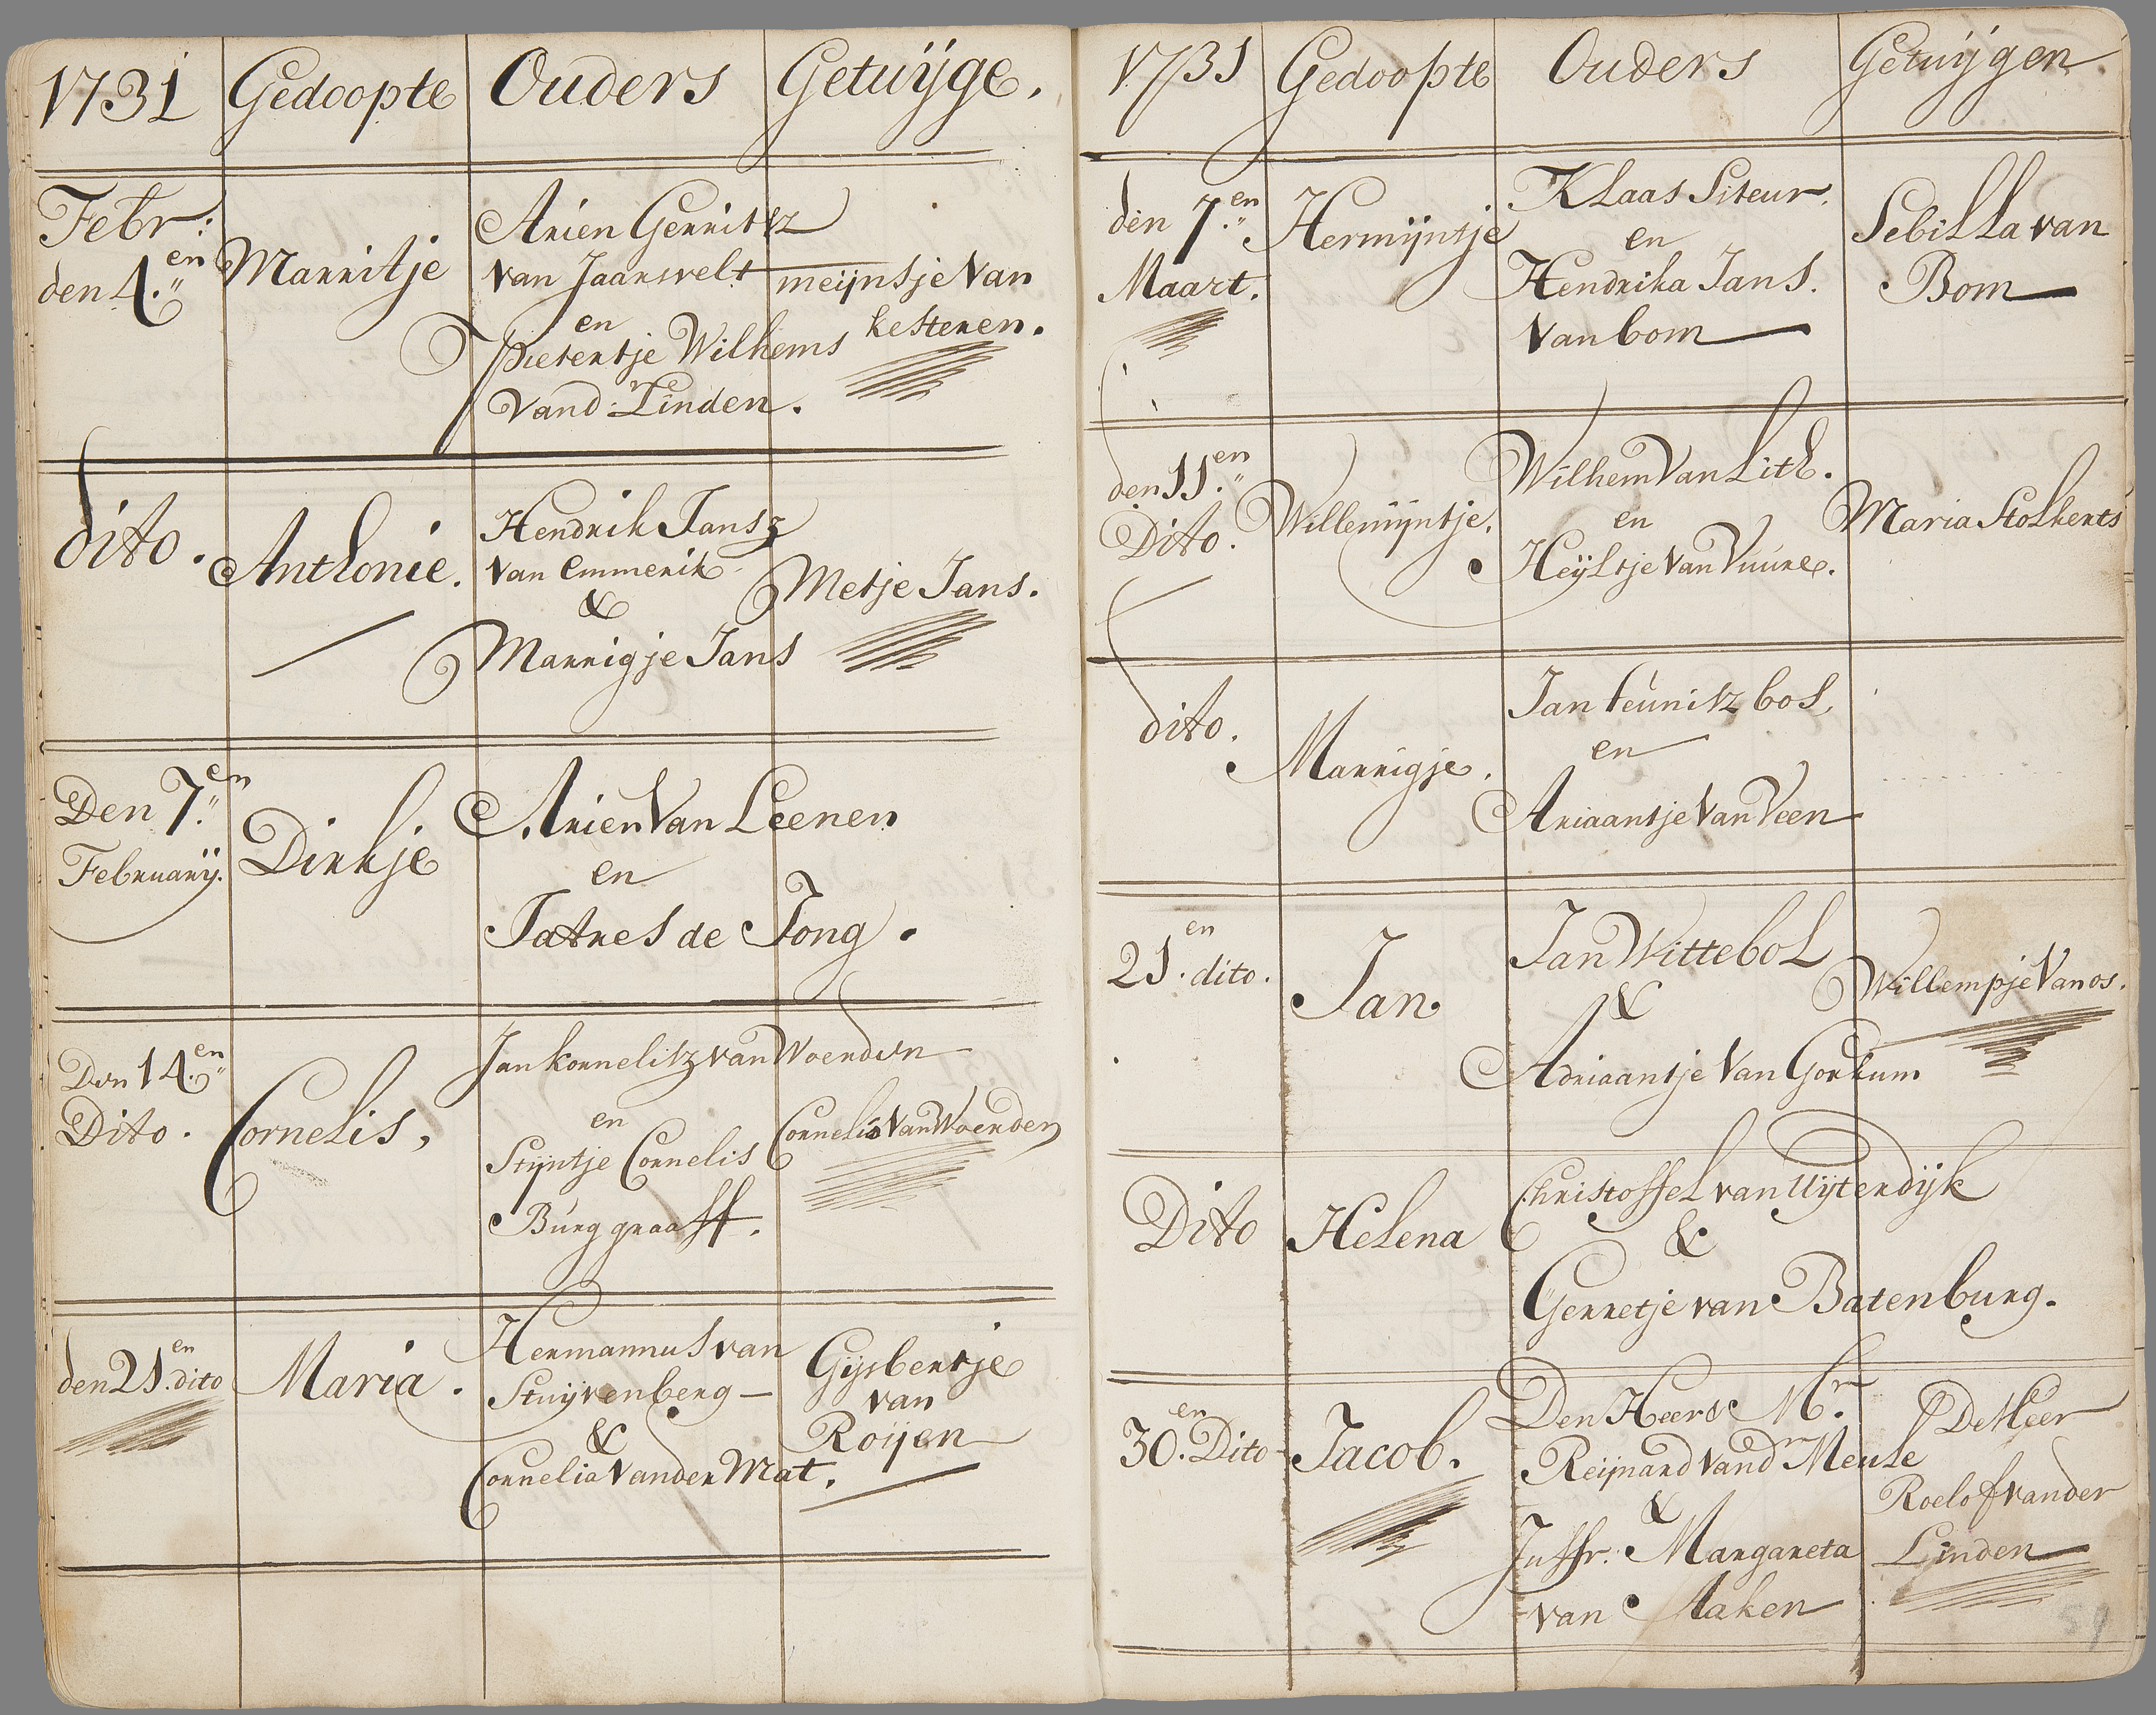 1731 Gedoopte Ouders Getuijge.
Febr:
den 4.en
Marritje
Arien Gerritsz
van Jaarsvelt
en
Pietertje Wilhems
Vand. Linden.
meijnsje Van
kesteren.
dito.
Anthonie.
Hendrik Jansz
van Emmerik
&
Marrigje Jans
Metje Jans.
Den 7.en
Februarij.
Dirkje
Arien Van Leenen
en
Jatres de Jong.
Den 14.en
Dito.
Cornelis,
Jan kornelisz van Woerden
en
Stijntje Cornelis
Burggraaff.
Cornelis Van Woerden
den 21.en dito
Maria.
Hermannus van
Stuijvenberg
&
Cornelia Vander Mat.
Gijsbertje
van
Roijen
1731 Gedoopte Ouders Getuijgen
den 7.en
Maart.
Hermijntje
Klaas Siteur.
en
Hendrika Jans.
Van bom
Sebilla van
Bom
den 11.en
Dito.
Willemijntje.
Wilhem Van Lith.
en
Heijltje Van Vuure.
Maria Stolkerts
dito.
Marrigje.
Jan teunisz bos,
en
Ariaantje Van Veen
21.en dito.
Jan.
Jan Wittebol
&
Adriaantje Van Gorkum
Willempje Van os.
Dito
Helena
Christoffel van Uijterdijk
&
Gerretje van Batenburg.
30.en Dito
Jacob.
Den Heere Mr.
Reijnard Vandr Meule
&
Juffr. Margareta
van Aaken
De Heer
Roelof vander
Linden
59